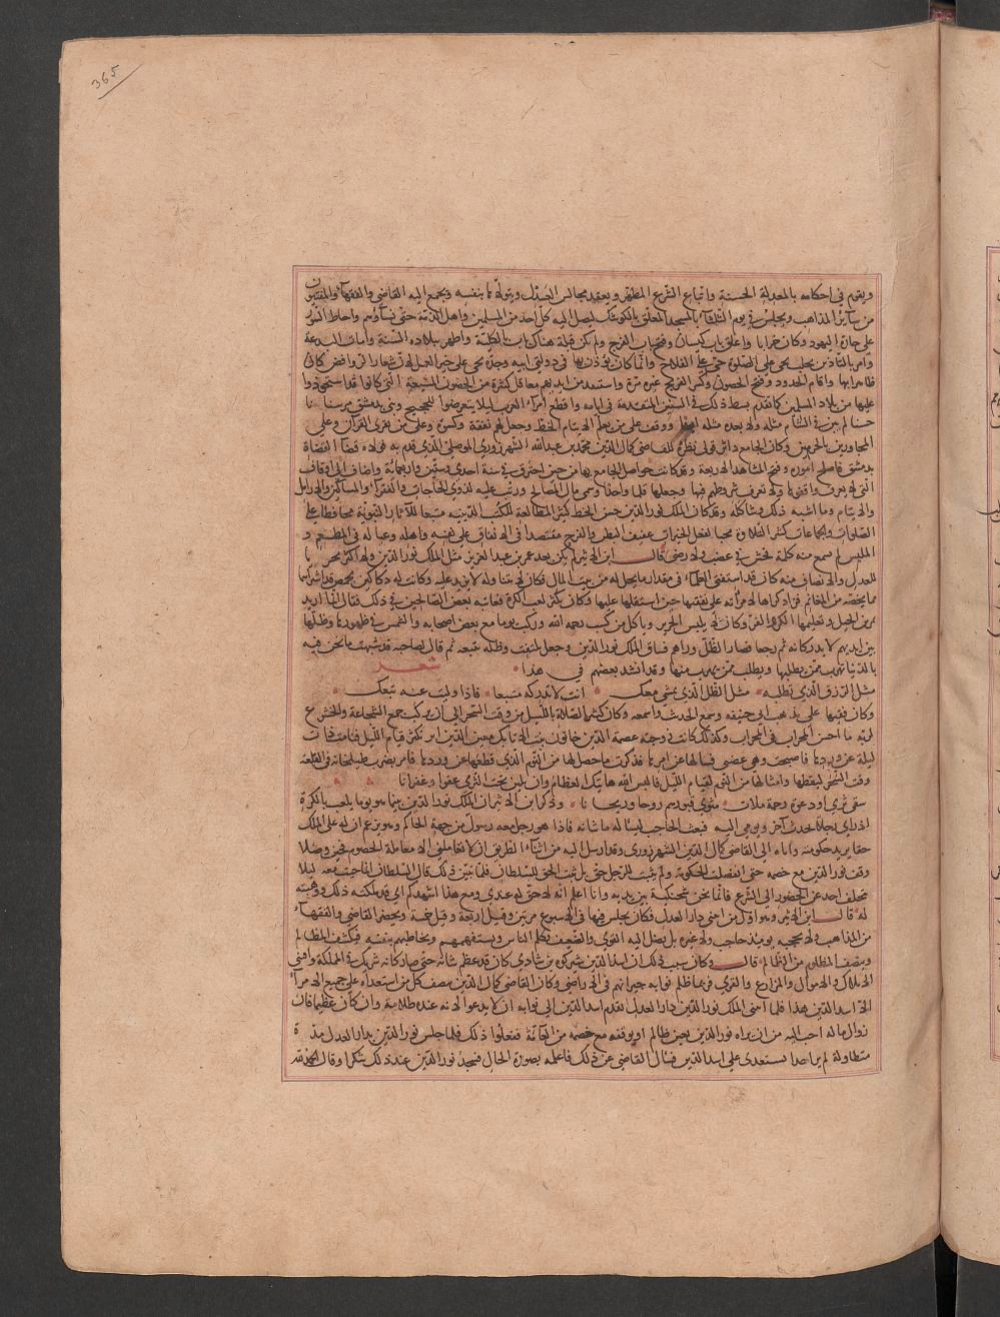 365
ويقوم في احكامه بالمعدلة الحسنة واتباع الشرع المطهر ويعقد مجالس العدل ويتولاها بنفسه ويجتمع اليه القاضي والفقهاء والمفتيون
من سائر المذاهب ويجلس في يوم الثلاثاء بالمسجد المعلق بالكوشك ليصل اليه كل احد من المسلمين واهل الذمة حتى يساويهم واحاط السور
على حارة اليهود وكان خرابا واغلق باب كيسان وفتح باب الفرج ولم يكن قبله هناك باب بالكلية واظهر ببلاده السنة وامات البدعة
وامر بالتاذين بحي على الصلوة حي على الفلاح وانما كان يؤذن في دولتي ابيه وجده بحي على خير العمل لان شعار الروافض كان
ظاهرا بها واقام الحدود وفتح الحصون وكسر الفرنج غير مرة واستنقذ من ايديهم معاقل كثيرة من الحصون المنيعة التي كانوا قد استحوذوا
عليها من بلاد المسلمين كما تقدم بسط ذلك في السنين المتقدمة في ايامه واقطع امراء العرب ليلا يتعرضوا للحجيج وبنى بدمشق مرستانا
حسنا لم يبن في الشام مثله ولا بعده مثله ووقف على من يعلم الايتام الخط وجعل لهم نفقة وكسوة وعلى من يقري القران وعلى
المجاورين بالحرمين وكان الجامع داثرا فولى نظره للقاضي كمال الدين محمد بن عبدالله الشهرزوري الموصلي الذي قدم به فولاه قضا القضاة
بدمشق فاصلح اموره وفتح المشاهد الاربعة وقد كانت حواصل الجامع بها من حين احترق في سنة احدى وستين واربعمائة واضاف الى اوقاف
التي لا يعرف واقفوها ولا تعرف شروطهم فيها وجعلها قلما واحدا وسمي مال المصالح ورتب عليه لذوي الحاجات والفقراء والمساكين والارامل
والايتام وما اشبه ذلك وشاكله وقد كان الملك نور الدين حسن الخط كثير المطالعة للكتب الدينية متبعا للاثار النبوية محافظا على
الصلوات والجماعات كثير التلاوة محبا لفعل الخيرات عفيف البطن والفرج مقتصدا في الانفاق على نفسه واهله وعياله في المطعم و
الملبس لم تسمع منه كلمة فحش في غضب ولا رضى قال ابن الاثير لم يكن بعد عمر بن عبد العزيز مثل الملك نور الدين ولا اكثر تحريا
للعدل والانصاف منه كان قد استفتى العلماء في مقدار ما يحل له من بيت المال فكان يتناوله لا يزيد عليه وكانت له دكاكين بحمص قد اشتراها
مما يخصه من المغانم فزاد كراها لامراته على نفقتها حين استقلتها عليها وكان يكثر لعب الكرة فعاتبه بعض الصالحين في ذلك فقال انما اريد
تمرين الخيل وتعليمها الكر والفر وكان لا يلبس الحرير وياكل من كسب يده رحمه الله وركب يوما مع بعض اصحابه والشمس في ظهورهما وظلهما
بين ايديهم لا يدركانه ثم رجعا فصار الظل وراهم فساق الملك نور الدين وجعل يلتفت وظله يتبعه ثم قال لصاحبه قد شبهت ما نحن فيه
بالدنيا تهرب ممن يطلبها وتطلب ممن يهرب منها وقد انشد بعضهم في هذا شعر
مثل الرزق الذي تطلبه مثل الظل الذي يمشي معك انت لا تدركه متبعا فاذا وليت عنه تبعك
وكان فقيها على مذهب ابي حنيفة وسمع الحديث واسمعه وكان كثير الصلاة بالليل من وقت السحر الى ان يركب جمع الشجاعة والخشوع
لربه ما احسن المحراب في المحراب وكذلك كانت زوجته عصمة الدين خاتون بنت الاتابك معين الدين انر تكثر قيام الليل فنامت ذات
ليلة عن وردها فاصبحت وهي غضبى فسالها عن امرها فذكرت ما حصل لها من النوم الذي قطعها عن وردها فامر بضرب طبلخانه في القلعة
وقت السحر ليوقظها وامثالها من النوم لقيام الليل فالبس الله هاتيك العظام وان بلين تحت الثرى عفوا وغفرانا
سقى ثرى اودعوه رحمة ملات مثوى قبورهم روحا وريحانا وذكر ابن الاثير ان الملك نور الدين بينما هو يوما يلعب بالكرة
اذ راى رجلا يحدث اخر ويومي اليه فبعث الحاجب ليساله ما شانه فاذا هو رجل معه رسول من جهة الحاكم وهو يزعم ان له على الملك
حقا يريد حكومته واياه الى القاضي كمال الدين الشهرزوري وقد ارسل اليه من اثناء الطريق ان لا تعاملني الا معاملة الخصوم فحين وصلا
وقف نور الدين مع خصمه حتى انفصلت الحكومة ولم يثبت للرجل حق بل ثبت الحق للسلطان فلما تبين ذلك قال السلطان انما جئت معه ليلا
يتخلف احد عن الحضور الى الشرع فانما نحن شحنكية بين يديه وانا اعلم انه لا حق له عندي ومع هذا اشهدكم اني قد ملكته ذلك ووهبته
له قال ابن الاثير وهو اول من ابتنى دارا للعدل فكان يجلس فيها في الاسبوع مرتين وقيل اربعة وقيل خمسة ويحضر القاضي والفقهاء
من المذاهب ولا يحجبه يومئذ حاجب ولا غيره بل يصل اليه القوي والضعيف يكلم الناس ويستفهمهم ويخاطبهم بنفسه فيكشف المظالم
وينصف المظلوم من الظالم قال وكان سبب ذلك ان اسد الدين شيركوه بن شادي كان قد عظم شانه حتى صار كانه شريك في المملكة واقتنى
الاملاك والاموال والمزارع والقرى فربما ظلم نوابه جيرانهم في الاراضي وكان القاضي كمال الدين ينصف كل من استعداه على جميع الامراء
الا اسد الدين هذا فلما ابتنى الملك نور الدين دارا للعدل تقدم اسد الدين الى نوابه ان لا يدعوا لاحد عنده ظلامة وان كان عظيما فان
زوال ماله احب اليه من ان يراه نور الدين بعين ظالم او يوقفه مع خصم من العامة ففعلوا ذلك فلما جلس نور الدين بدار العدل مدة
متطاولة لم ير احدا يستعدي على اسد الدين فسال القاضي عن ذلك فاعلمه بصورة الحال فسجد نور الدين عند ذلك شكرا وقال الحمد لله